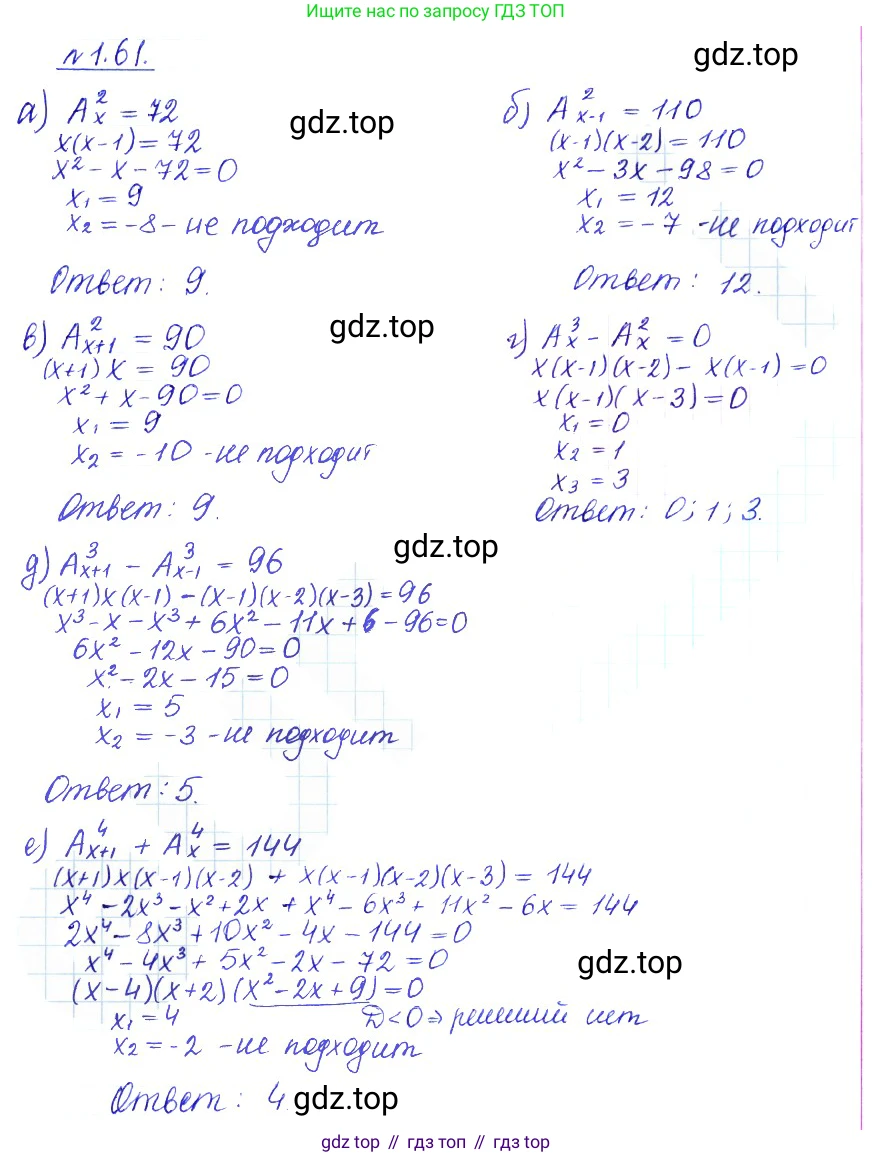 Ищите нас по запросу ГДЗ ТОП
№1.61.
gdz.top
а) A²ₓ = 72
x(x-1) = 72
x² - x - 72 = 0
x₁ = 9
x₂ = -8 - не подходит
Ответ: 9.
gdz.top
б) A²ₓ₋₁ = 110
(x-1)(x-2) = 110
x² - 3x - 98 = 0
x₁ = 12
x₂ = -7 - не подходит
Ответ: 12.
в) A²ₓ₊₁ = 90
(x+1)x = 90
x² + x - 90 = 0
x₁ = 9
x₂ = -10 - не подходит
Ответ: 9.
gdz.top
г) A³ₓ - A²ₓ = 0
x(x-1)(x-2) - x(x-1) = 0
x(x-1)(x-3) = 0
x₁ = 0
x₂ = 1
x₃ = 3
Ответ: 0; 1; 3.
д) A³ₓ₊₁ - A³ₓ₋₁ = 96
gdz.top
(x+1)x(x-1) - (x-1)(x-2)(x-3) = 96
x³ - x - x³ + 6x² - 11x + 6 - 96 = 0
6x² - 12x - 90 = 0
x² - 2x - 15 = 0
x₁ = 5
x₂ = -3 - не подходит
Ответ: 5.
е) A⁴ₓ₊₁ + A⁴ₓ = 144
(x+1)x(x-1)(x-2) + x(x-1)(x-2)(x-3) = 144
x⁴ - 2x³ - x² + 2x + x⁴ - 6x³ + 11x² - 6x = 144
2x⁴ - 8x³ + 10x² - 4x - 144 = 0
x⁴ - 4x³ + 5x² - 2x - 72 = 0
gdz.top
(x-4)(x+2)(x² - 2x + 9) = 0
x₁ = 4 D < 0 ⇒ решений нет
x₂ = -2 - не подходит
Ответ: 4
gdz.top
gdz top // гдз топ // gdz top